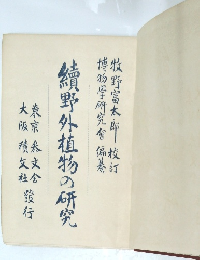 牧野富太郎 校訂
博物学研究会 編纂
續野外植物の研究
東京 参文舎
大阪 積文社 發行